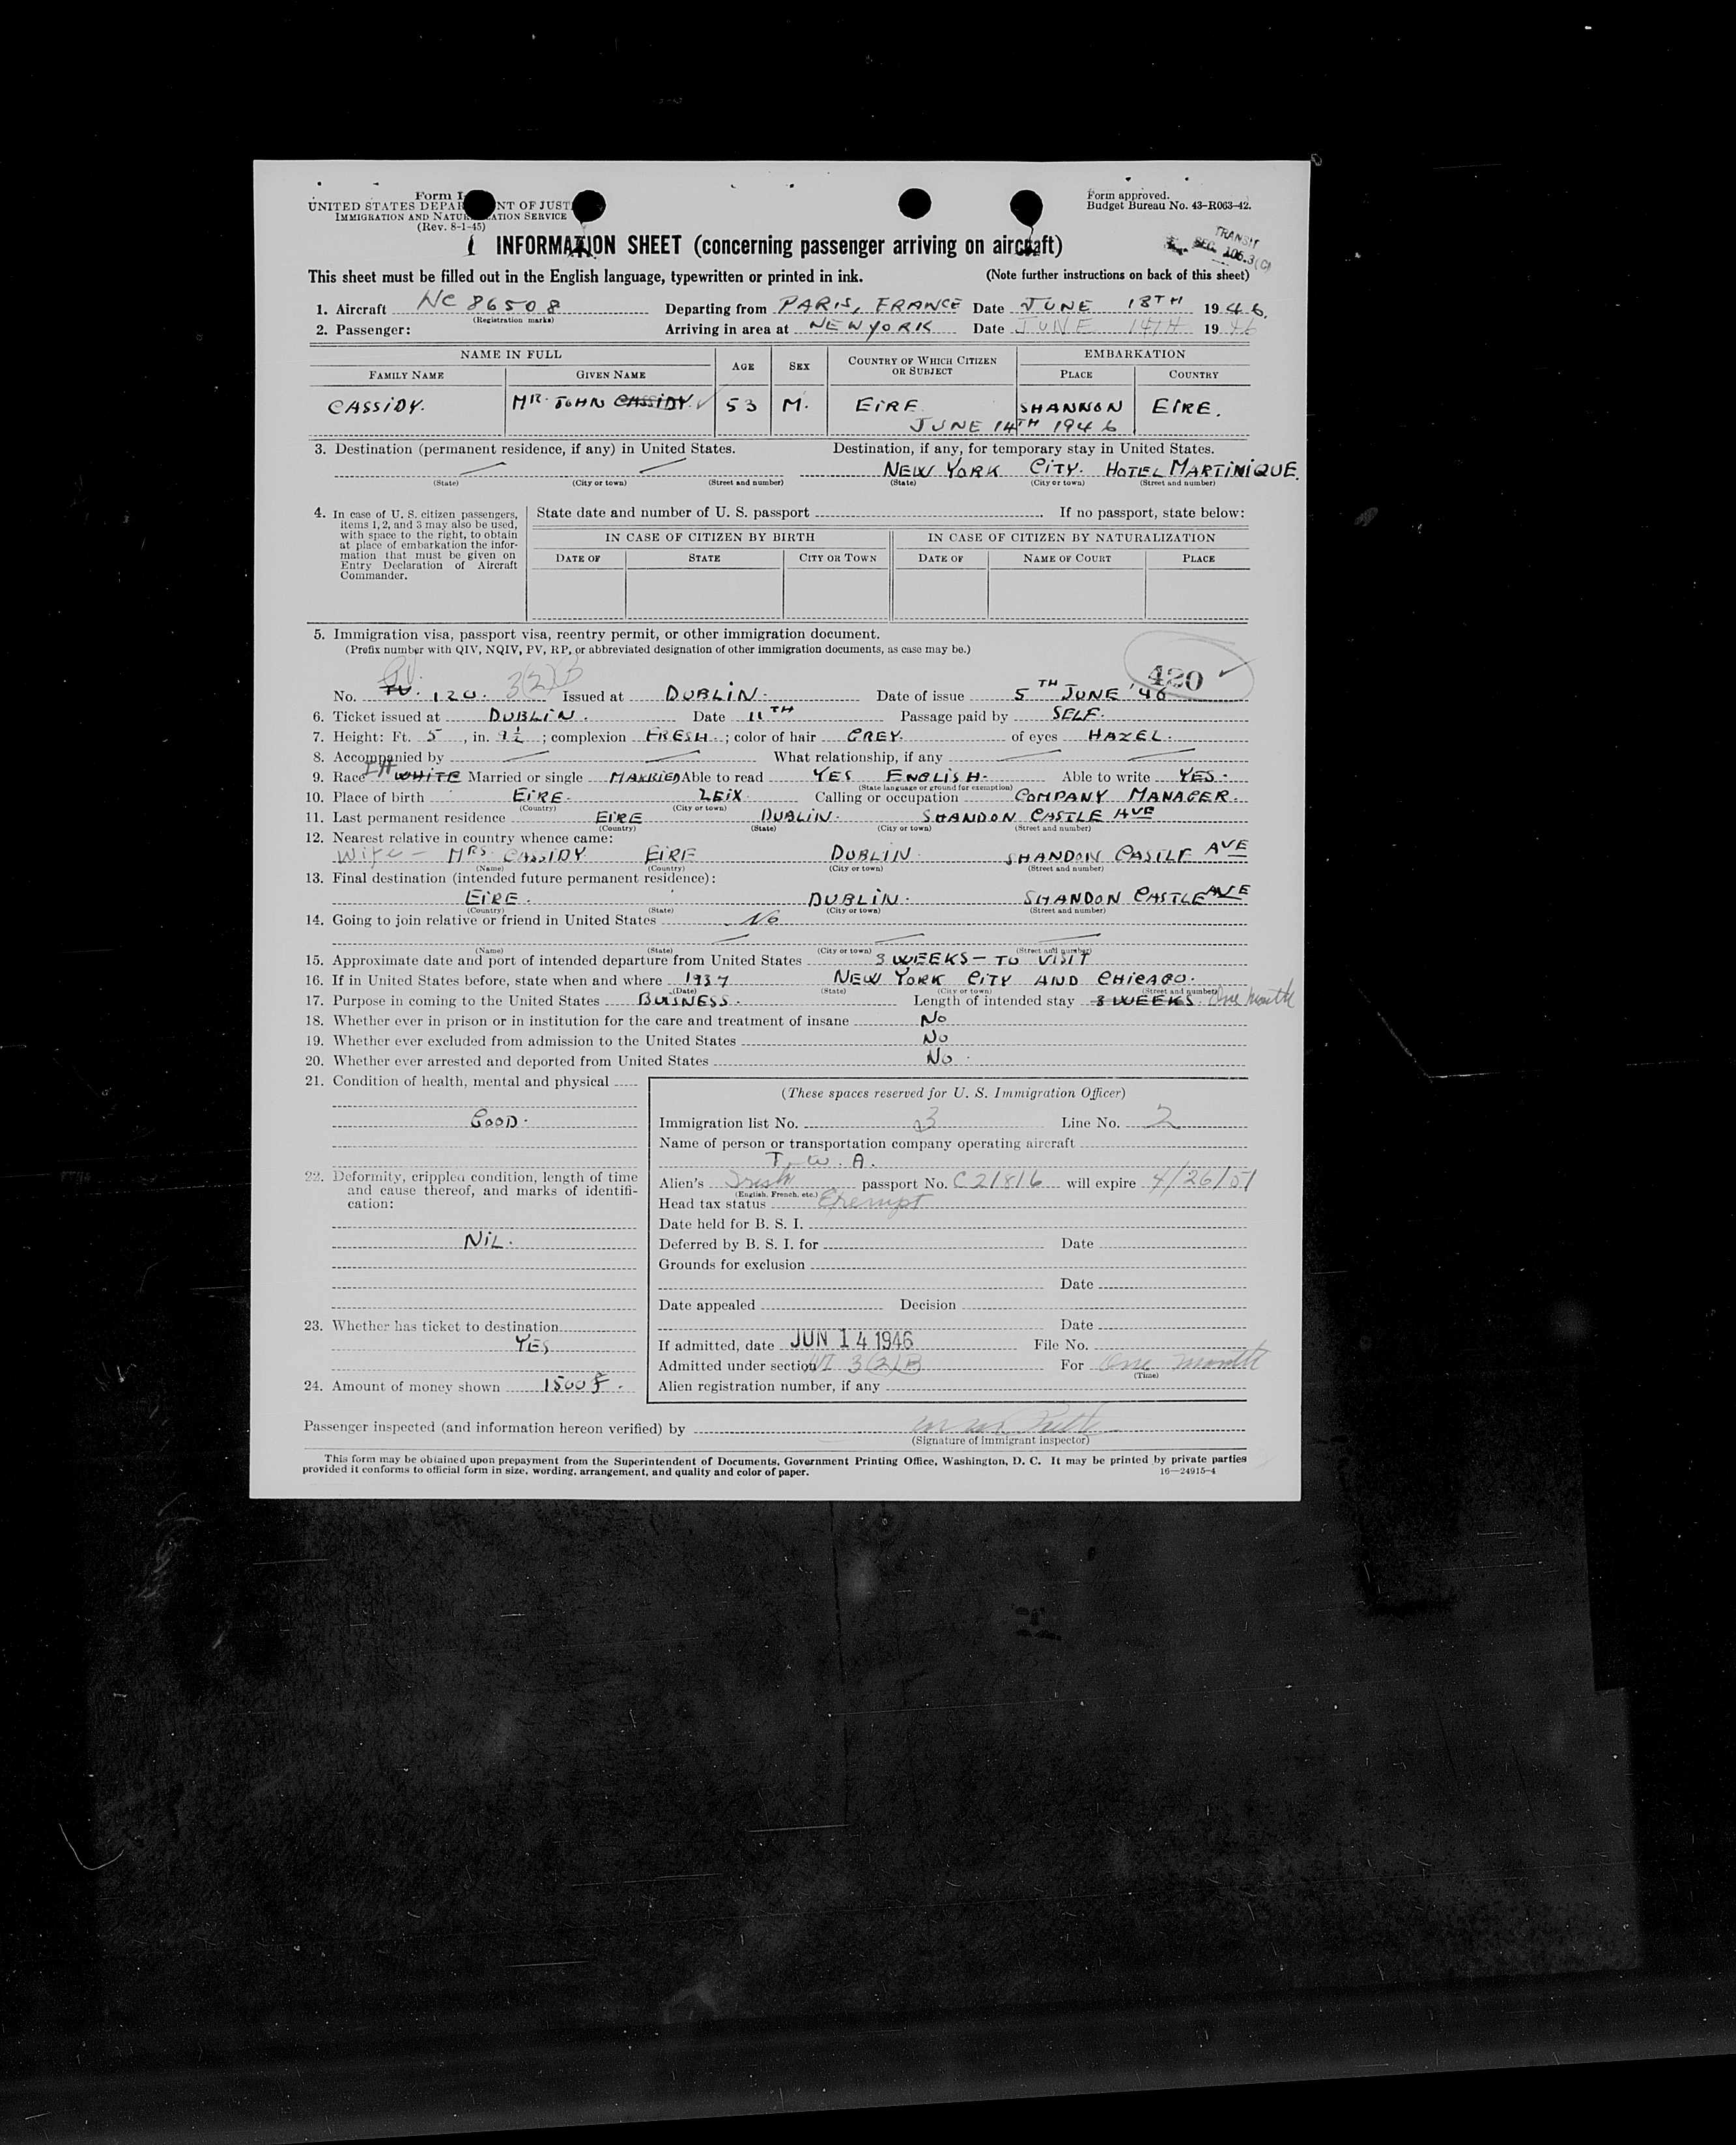 Form I
UNITED STATES DEPAR NT OF JUST
IMMIGRATION AND NATU ATION SERVICE
(Rev. 8-1-45)
Form approved.
Budget Bureau No. 43-R063-42.
INFORMATION SHEET (concerning passenger arriving on aircraft)
TRANSIT
SEC. 106.3(C)
This sheet must be filled out in the English language, typewritten or printed in ink. (Note further instructions on back of this sheet)
1. Aircraft NC 86508 Departing from PARIS, FRANCE Date JUNE 13TH 1946.
(Registration marks)
2. Passenger: Arriving in area at NEW YORK Date JUNE 14TH 1946
NAME IN FULL AGE SEX COUNTRY OF WHICH CITIZEN OR SUBJECT EMBARKATION
FAMILY NAME GIVEN NAME PLACE COUNTRY
CASSIDY. MR. JOHN CASSIDY. 53 M. EIRE SHANNON EIRE.
JUNE 14TH 1946
3. Destination (permanent residence, if any) in United States. Destination, if any, for temporary stay in United States.
NEW YORK CITY. HOTEL MARTINIQUE.
(State) (City or town) (Street and number) (State) (City or town) (Street and number)
4. In case of U. S. citizen passengers, items 1, 2, and 3 may also be used, with space to the right, to obtain at place of embarkation the information that must be given on Entry Declaration of Aircraft Commander.
State date and number of U. S. passport If no passport, state below:
IN CASE OF CITIZEN BY BIRTH IN CASE OF CITIZEN BY NATURALIZATION
DATE OF STATE CITY OR TOWN DATE OF NAME OF COURT PLACE
5. Immigration visa, passport visa, reentry permit, or other immigration document.
(Prefix number with QIV, NQIV, PV, RP, or abbreviated designation of other immigration documents, as case may be.)
420
No. 120. 3(2)B Issued at DUBLIN. Date of issue 5TH JUNE '46
6. Ticket issued at DUBLIN. Date 11TH Passage paid by SELF.
7. Height: Ft. 5, in. 9½; complexion FRESH.; color of hair GREY. of eyes HAZEL.
8. Accompanied by What relationship, if any
9. Race WHITE Married or single MARRIED Able to read YES ENGLISH. Able to write YES.
(State language or ground for exemption)
10. Place of birth EIRE. LEIX Calling or occupation COMPANY MANAGER.
(Country) (City or town)
11. Last permanent residence EIRE DUBLIN. SHANDON CASTLE AVE
(Country) (State) (City or town) (Street and number)
12. Nearest relative in country whence came:
Wife - MRS. CASSIDY EIRE DUBLIN. SHANDON CASTLE AVE
(Name) (Country) (City or town) (Street and number)
13. Final destination (intended future permanent residence):
EIRE. DUBLIN. SHANDON CASTLE AVE
(Country) (State) (City or town) (Street and number)
14. Going to join relative or friend in United States No
(Name) (State) (City or town) (Street and number)
15. Approximate date and port of intended departure from United States 3 WEEKS - TO VISIT
16. If in United States before, state when and where 1937 NEW YORK CITY AND CHICAGO.
(Date) (State) (City or town) (Street and number)
17. Purpose in coming to the United States BUISNESS. Length of intended stay 3 WEEKS. One month
18. Whether ever in prison or in institution for the care and treatment of insane No
19. Whether ever excluded from admission to the United States No
20. Whether ever arrested and deported from United States No.
21. Condition of health, mental and physical
GOOD.
22. Deformity, crippled condition, length of time and cause thereof, and marks of identification:
NIL.
23. Whether has ticket to destination
YES
24. Amount of money shown 1500 $.
(These spaces reserved for U. S. Immigration Officer)
Immigration list No. 3 Line No. 2
Name of person or transportation company operating aircraft
T. W. A.
Alien's Irish passport No. C21816 will expire 4/26/51
(English, French, etc.)
Head tax status Exempt
Date held for B. S. I.
Deferred by B. S. I. for Date
Grounds for exclusion
Date
Date appealed Decision
Date
If admitted, date JUN 14 1946 File No.
Admitted under section 3(2)B For One month
(Time)
Alien registration number, if any
Passenger inspected (and information hereon verified) by
(Signature of immigrant inspector)
This form may be obtained upon prepayment from the Superintendent of Documents, Government Printing Office, Washington, D. C. It may be printed by private parties
provided it conforms to official form in size, wording, arrangement, and quality and color of paper. 16—24915-4